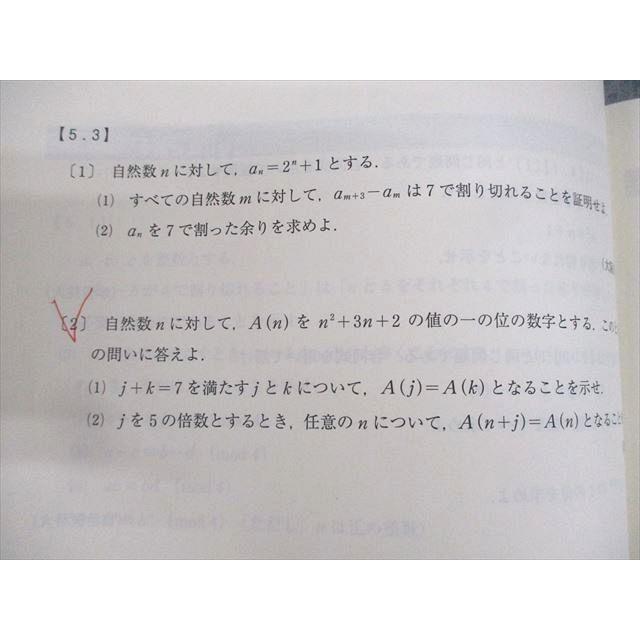 【5.3】
〔1〕 自然数 n に対して，aₙ=2ⁿ+1とする．
(1) すべての自然数 m に対して，aₘ₊₃−aₘ は 7 で割り切れることを証明せよ
(2) aₙ を 7 で割った余りを求めよ．
〔2〕 自然数 n に対して，A(n) を n²+3n+2 の値の一の位の数字とする．この
の問いに答えよ．
(1) j+k=7 を満たす j と k について，A(j)=A(k) となることを示せ
(2) j を 5 の倍数とするとき，任意の n について，A(n+j)=A(n) となるこ